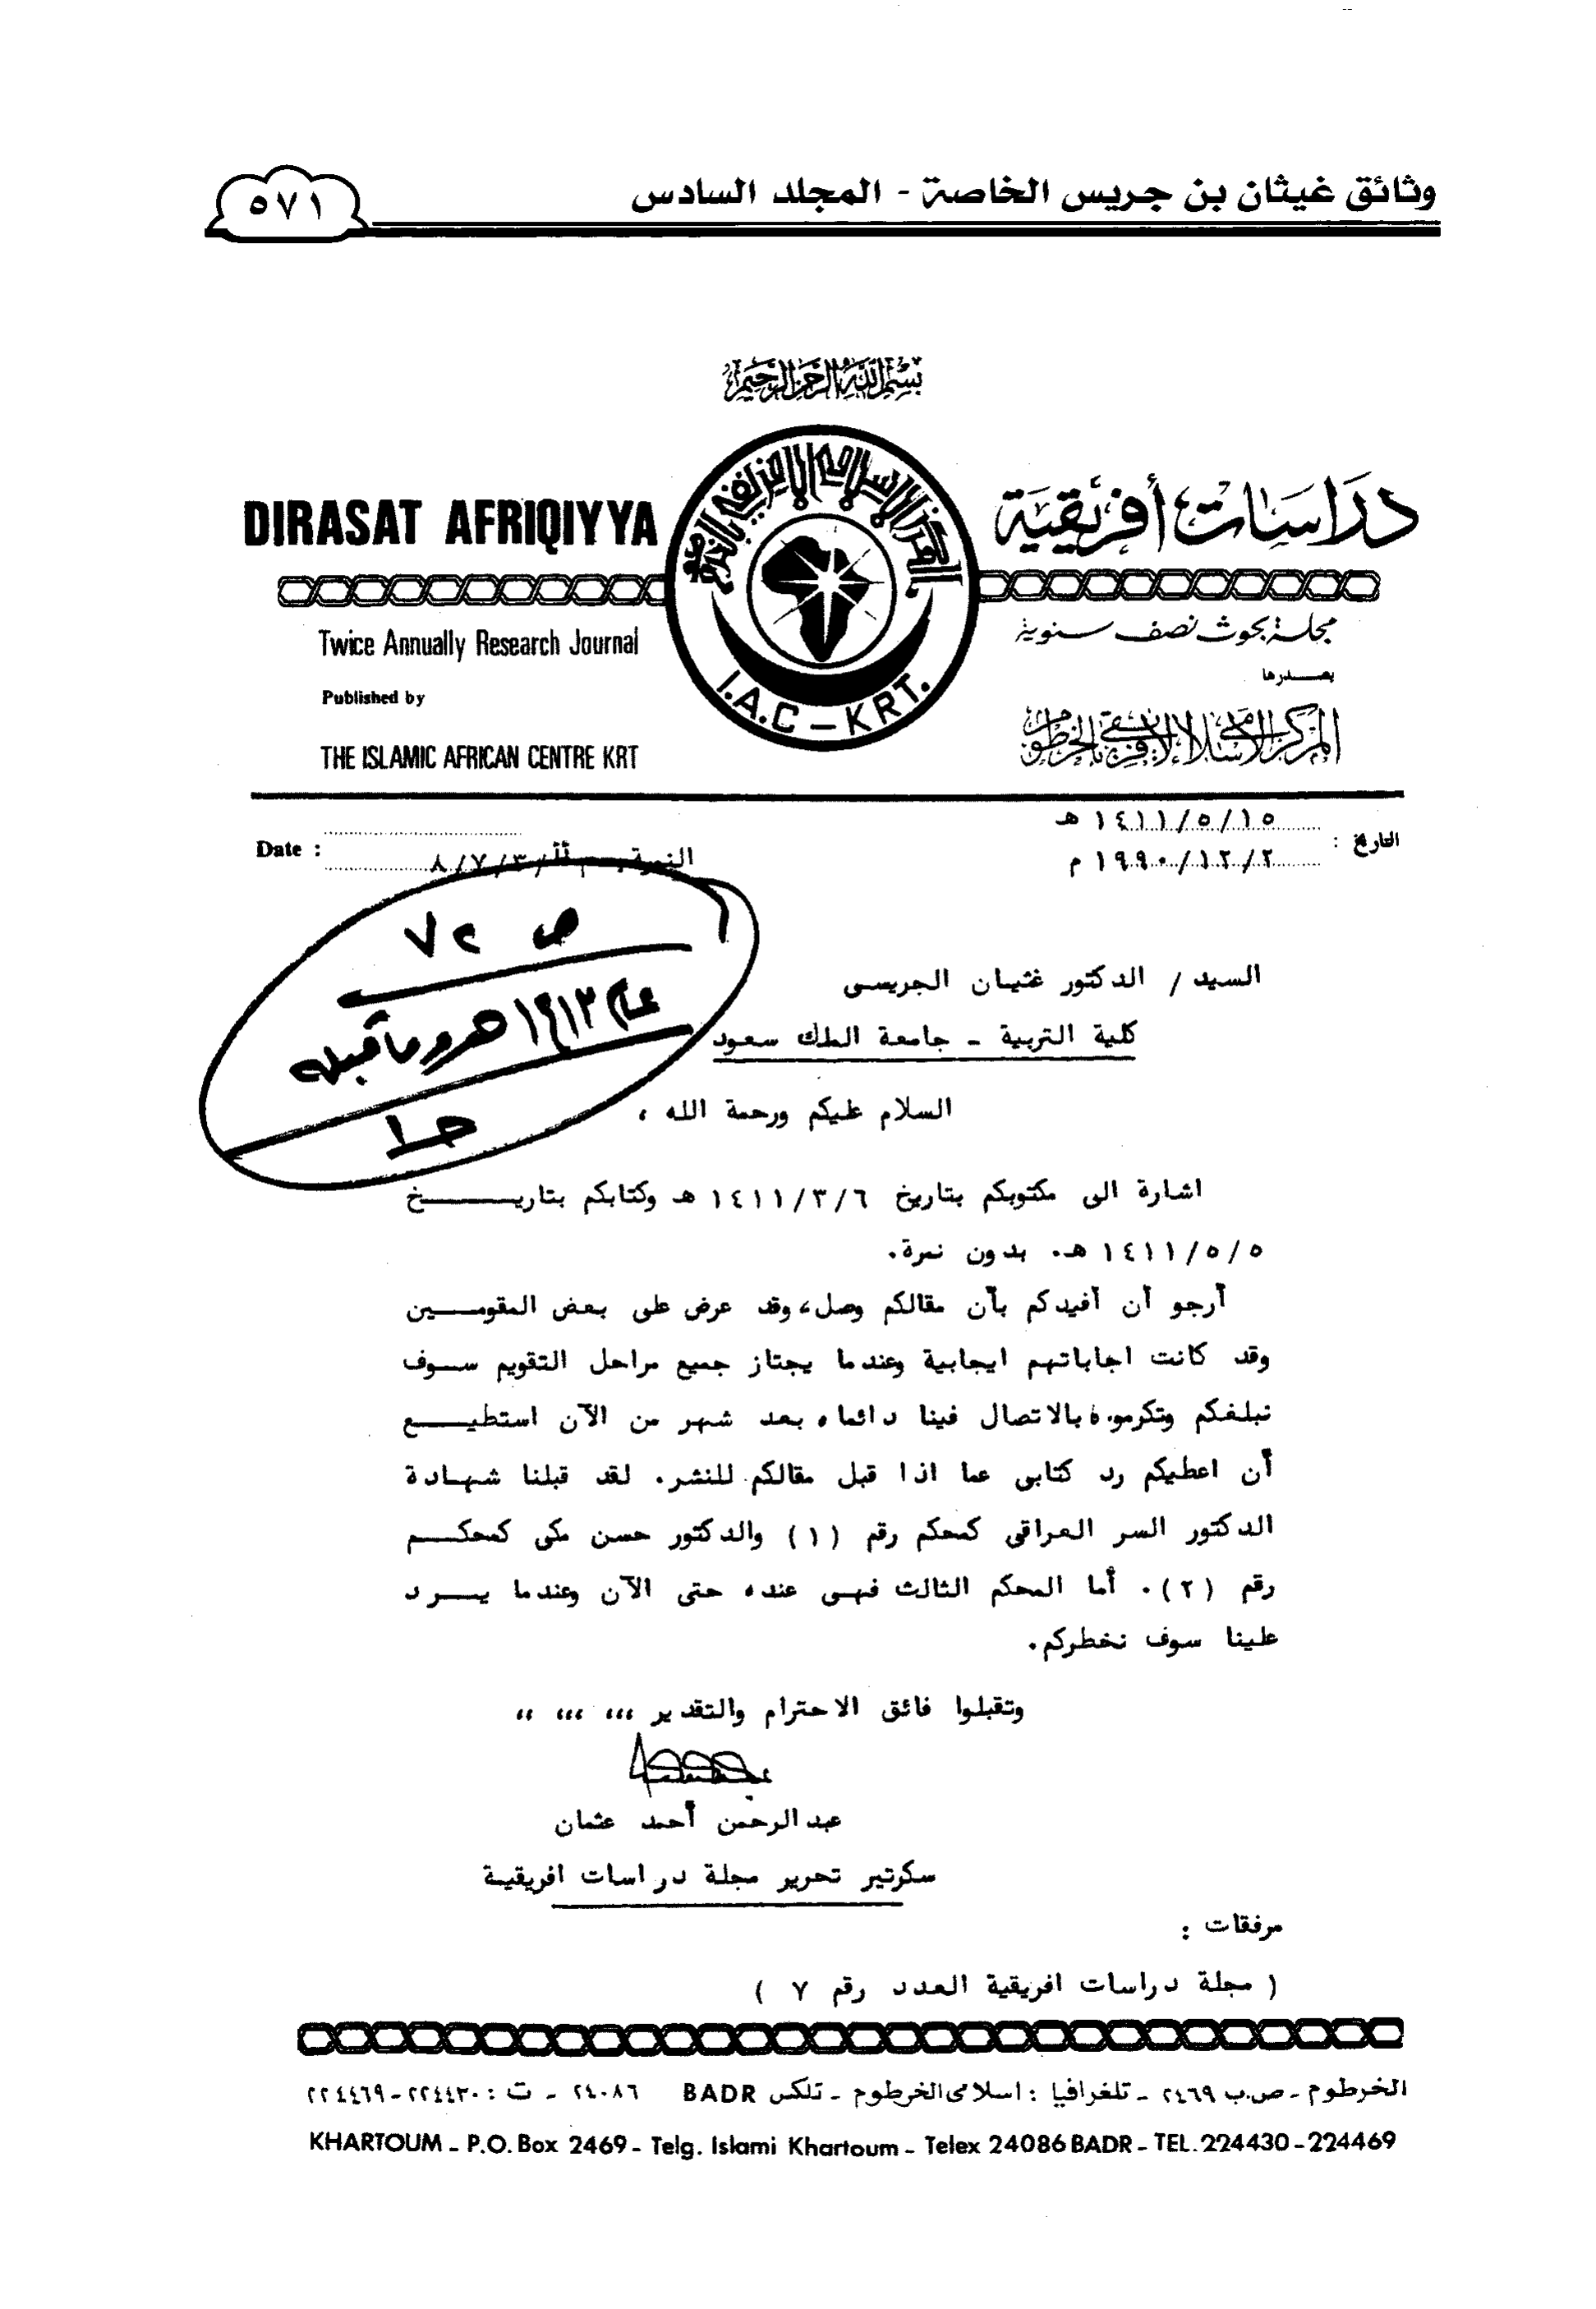 وثائق غيثان بن جريس الخاصة - المجلد السادس
٥٧١
بسم الله الرحمن الرحيم
DIRASAT AFRIQIYYA
دراسات أفريقية
المركز الإسلامي الافريقي بالخرطوم
I.A.C - KRT.
Twice Annually Research Journal
مجلة بحوث نصف سنوية
Published by
يصدرها
THE ISLAMIC AFRICAN CENTRE KRT
المركز الإسلامي الافريقي بالخرطوم
التاريخ : ١٤١١/٥/١٥ هـ
١٩٩٠/١٢/٢ م
Date :
النمرة ٨/٧/٣/
ص ٧٢
عام ١٤١٣هـ وما قبله
حـ١
السيد / الدكتور غثيان الجريسى
كلية التربية - جامعة الملك سعود
السلام عليكم ورحمة الله ،
اشارة الى مكتوبكم بتاريخ ١٤١١/٣/٦ هـ وكتابكم بتاريـــــخ
١٤١١/٥/٥ هـ. بدون نمرة.
أرجو أن أفيدكم بأن مقالكم وصل، وقد عرض على بعض المقومـــين
وقد كانت اجاباتهم ايجابية وعندما يجتاز جميع مراحل التقويم ســوف
نبلغكم وتكرموا بالاتصال فينا دائما، بعد شهر من الآن استطيـــع
أن اعطيكم رد كتابى عما اذا قبل مقالكم للنشر. لقد قبلنا شهـادة
الدكتور السر العراقى كمحكم رقم (١) والدكتور حسن مكى كمحكـــم
رقم (٢). أما المحكم الثالث فهى عنده حتى الآن وعندما يـــرد
علينا سوف نخطركم.
وتقبلوا فائق الاحترام والتقدير ،،، ،،، ،،
عبدالرحمن أحمد عثمان
سكرتير تحرير مجلة دراسات افريقية
مرفقات :
( مجلة دراسات افريقية العدد رقم ٧ )
الخرطوم - ص.ب ٢٤٦٩ - تلغرافيا : اسلامى الخرطوم - تلكس BADR ٢٤٠٨٦ - ت : ٢٢٤٤٣٠-٢٢٤٤٦٩
KHARTOUM - P.O. Box 2469 - Telg. Islami Khartoum - Telex 24086 BADR - TEL. 224430 - 224469